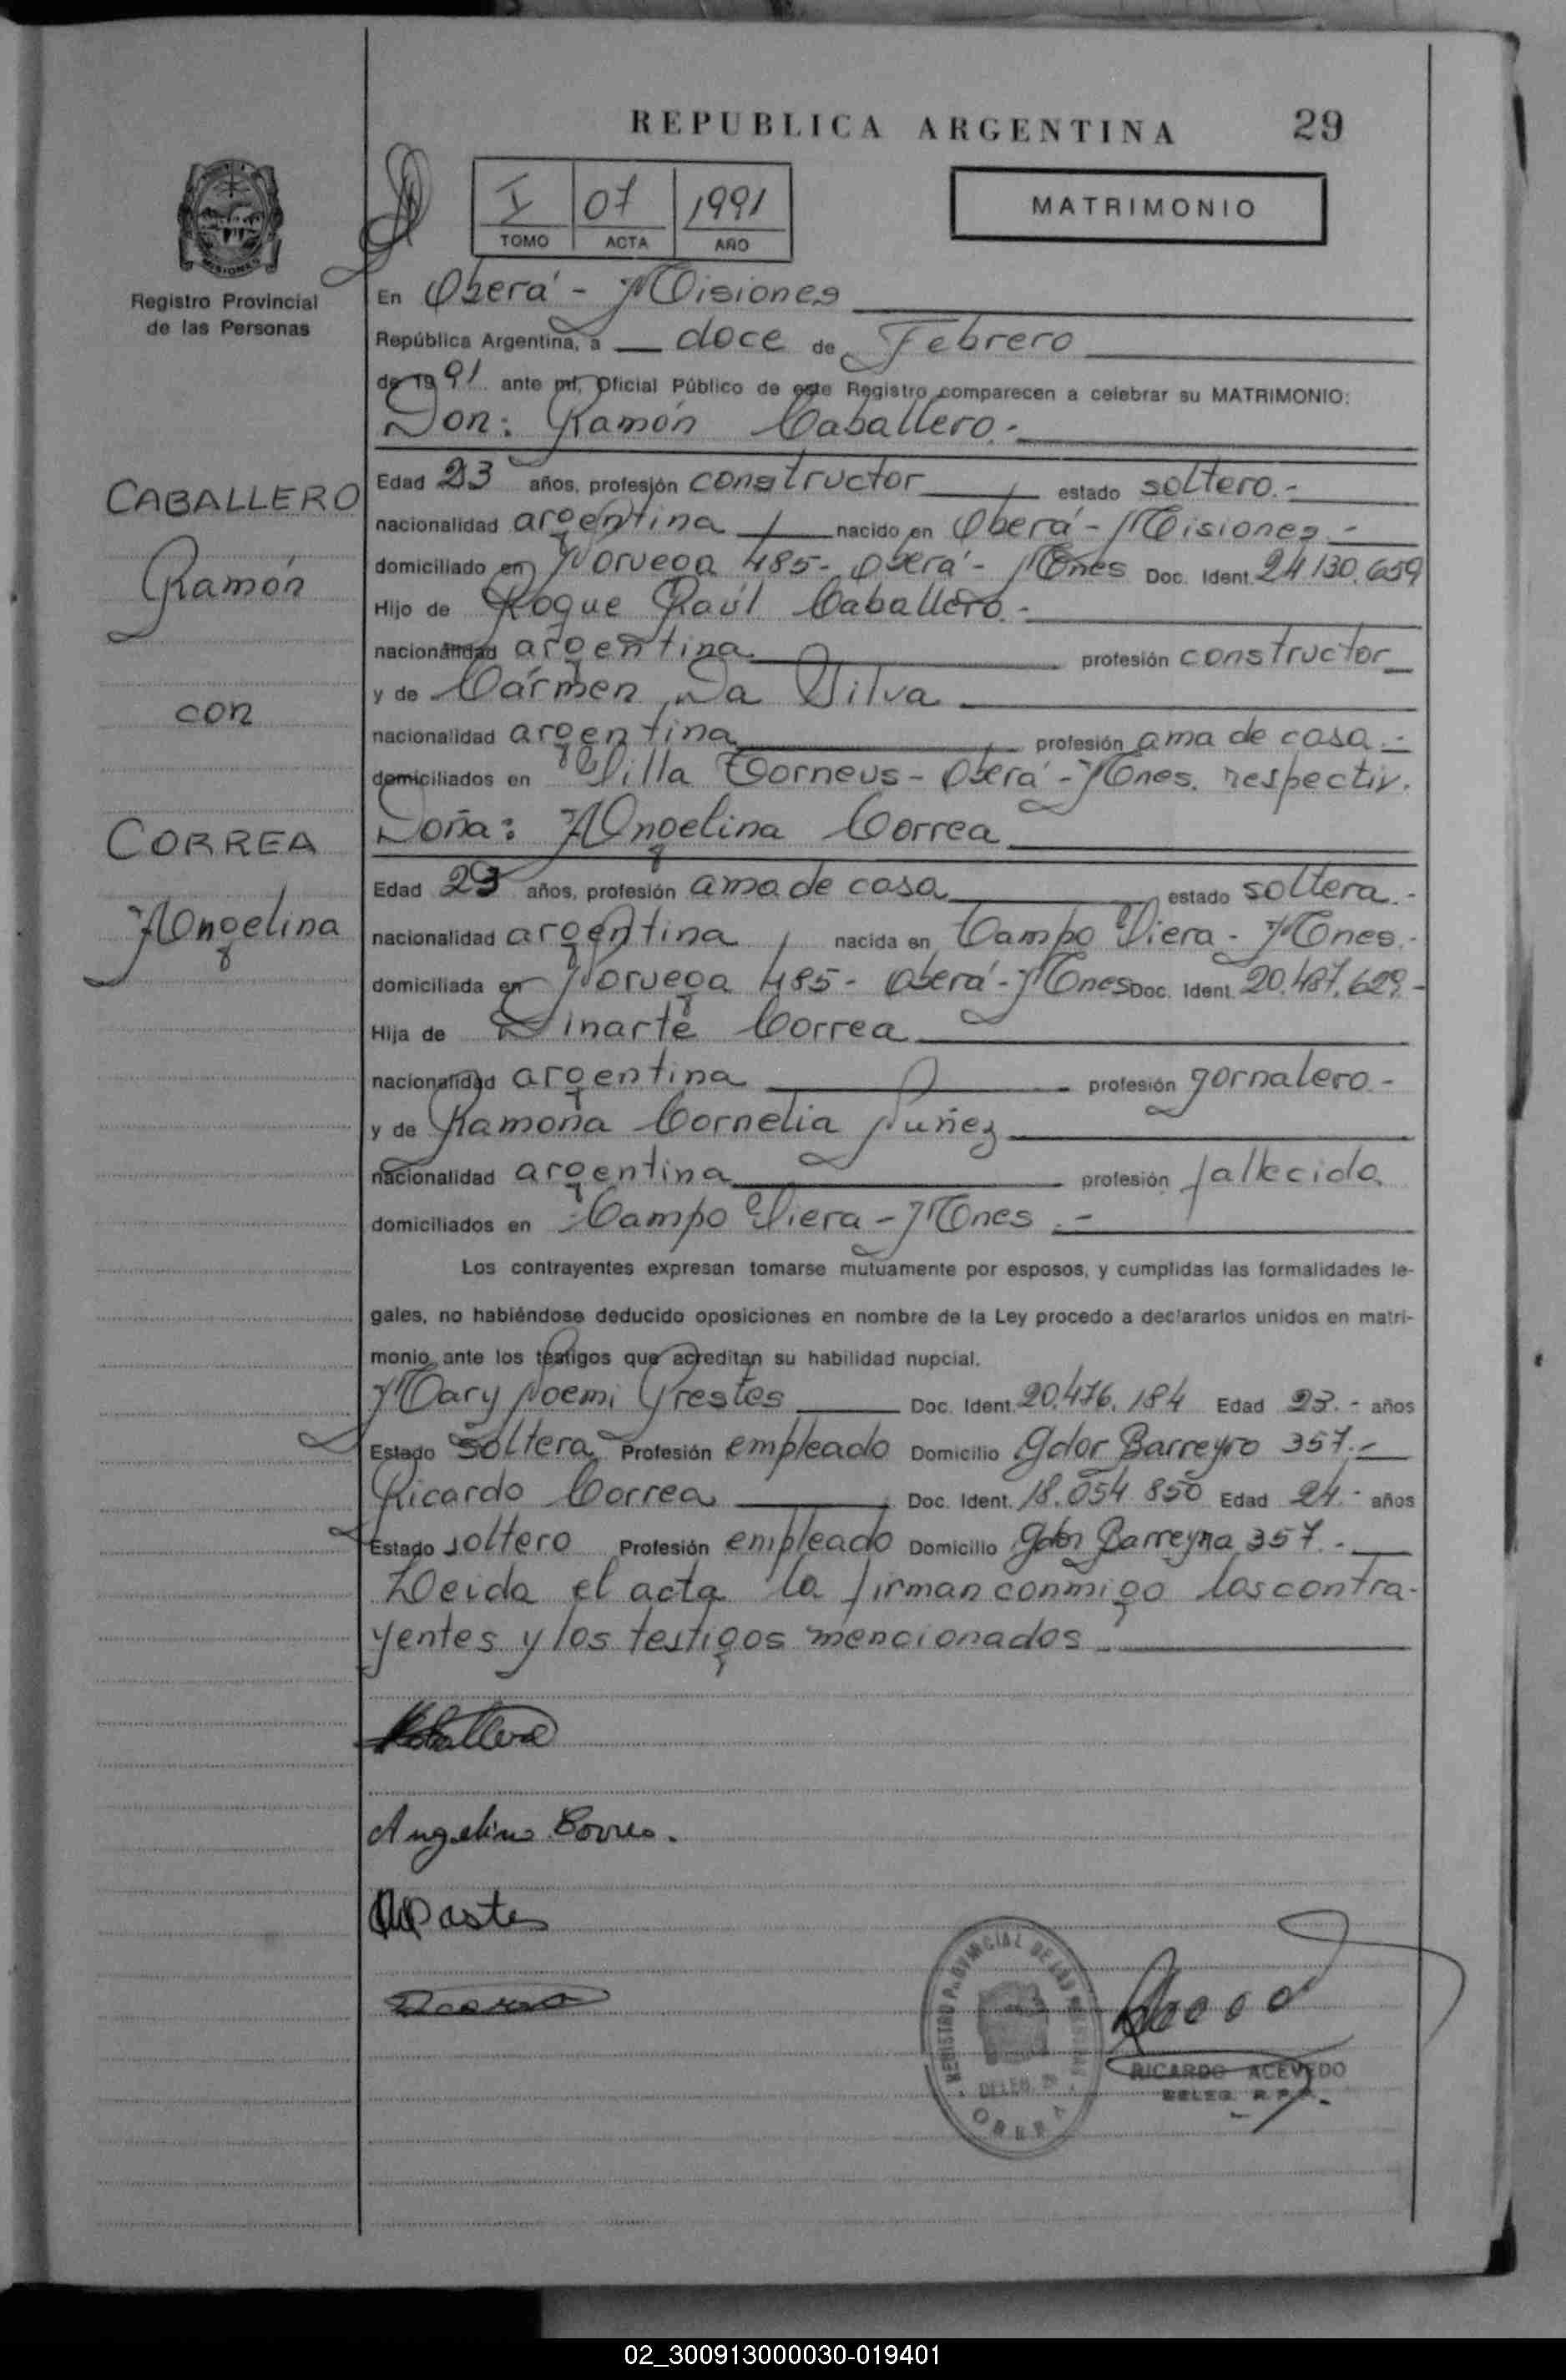 REPUBLICA ARGENTINA 29
I 07 1991
TOMO ACTA AÑO
MATRIMONIO
MISIONES
Registro Provincial
de las Personas
En Oberá - Misiones
República Argentina, a doce de Febrero
de 1991 ante mí, Oficial Público de este Registro comparecen a celebrar su MATRIMONIO:
Don: Ramón Caballero.-
CABALLERO
Ramón
con
CORREA
Angelina
Edad 23 años, profesión constructor estado soltero.-
nacionalidad argentina nacido en Oberá - Misiones.-
domiciliado en Noruega 485- Oberá - Mnes Doc. Ident. 24.130.659
Hijo de Roque Raúl Caballero.-
nacionalidad argentina profesión constructor
y de Cármen Da Silva
nacionalidad argentina profesión ama de casa.-
domiciliados en Villa Torneus - Oberá - Mnes. respectiv.
Doña: Angelina Correa
Edad 23 años, profesión ama de casa estado soltera.-
nacionalidad argentina nacida en Campo Viera - Mnes.-
domiciliada en Noruega 485- Oberá - Mnes Doc. Ident. 20.487.629.-
Hija de Dinarte Correa
nacionalidad argentina profesión jornalero.-
y de Ramona Cornelia Nuñez
nacionalidad argentina profesión fallecida.
domiciliados en Campo Viera - Mnes.-
Los contrayentes expresan tomarse mutuamente por esposos, y cumplidas las formalidades le-
gales, no habiéndose deducido oposiciones en nombre de la Ley procedo a declararlos unidos en matri-
monio ante los testigos que acreditan su habilidad nupcial.
Mary Noemi Prestes Doc. Ident. 20.476.184 Edad 23.- años
Estado soltera Profesión empleado Domicilio Gdor Barreyro 357.-
Ricardo Correa Doc. Ident. 18.054.850 Edad 24.- años
Estado soltero Profesión empleado Domicilio Gdor Barreyra 357.-
Leida el acta la firman conmigo los contra-
yentes y los testigos mencionados.
Angelina Correa.
REGISTRO PROVINCIAL DE LAS PERSONAS
DELEG.
OBERA
RICARDO ACEVEDO
DELEG. R.P.P.
02_300913000030-019401